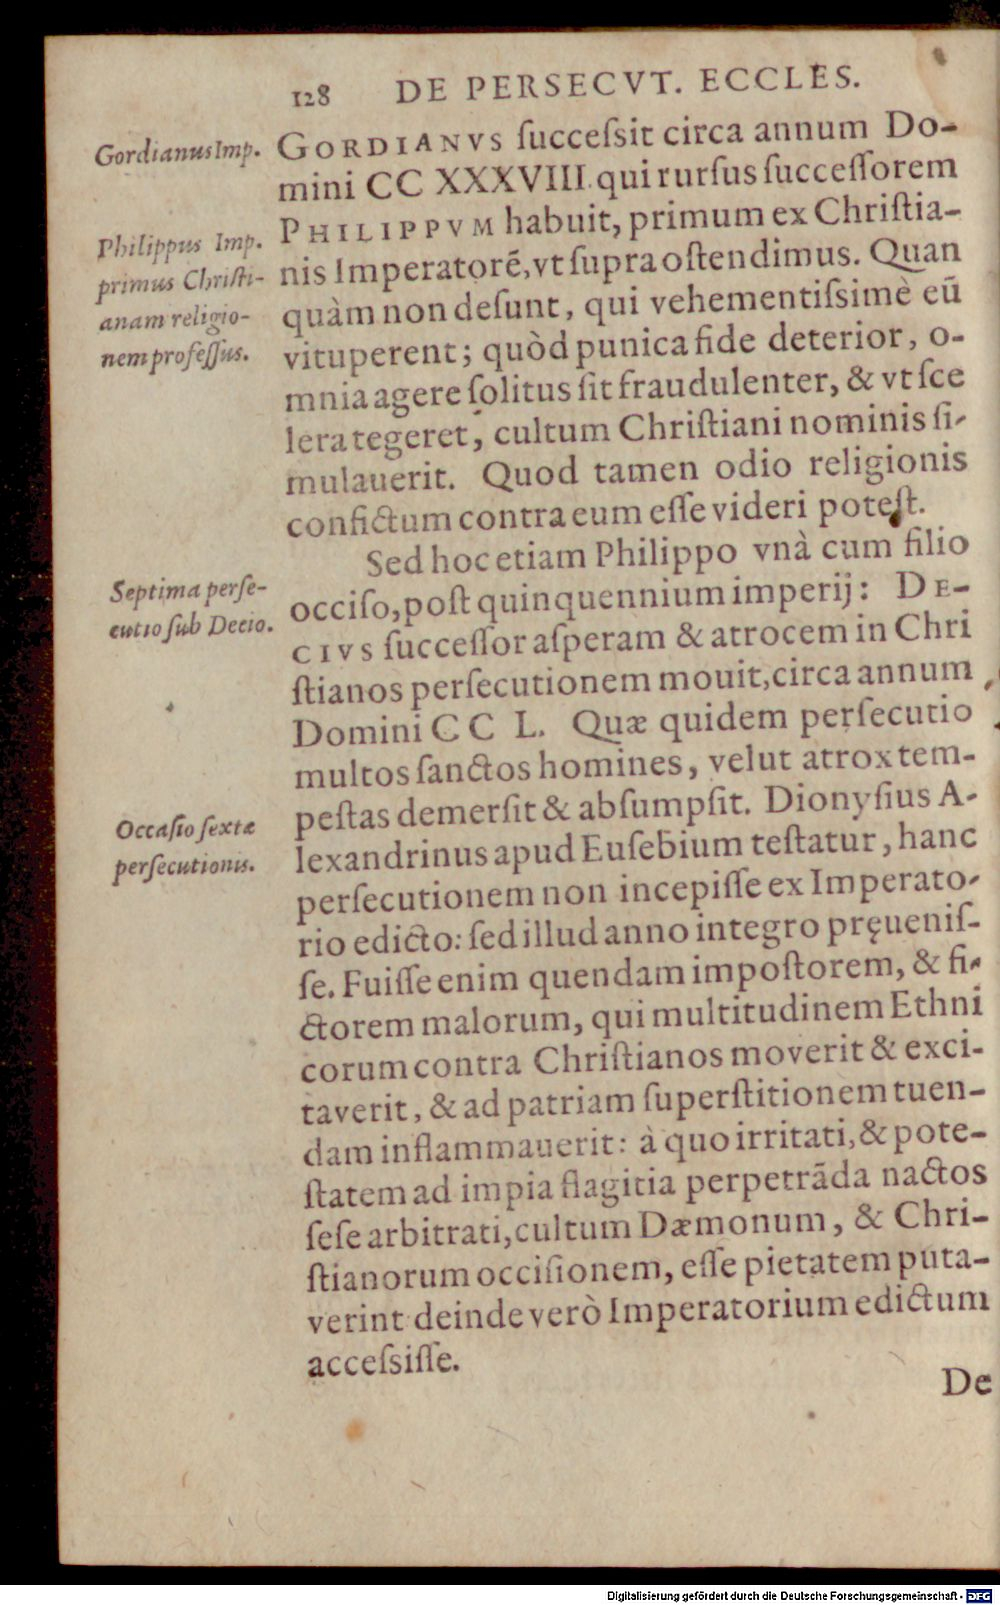 128 DE PERSECVT. ECCLES.
Gordianus Imp.
GORDIANVS ſucceſsit circa annum Do-
mini CC XXXVIII. qui rurſus ſucceſſorem
Philippus Imp.
primus Chriſti-
anam religio-
nem profeſſus.
PHILIPPVM habuit, primum ex Chriſtia-
nis Imperatorē, vt ſupra oſtendimus. Quan
quàm non deſunt, qui vehementiſsimè eū
vituperent; quòd punica fide deterior, o-
mnia agere ſolitus ſit fraudulenter, & vt ſce
lera tegeret, cultum Chriſtiani nominis ſi-
mulauerit. Quod tamen odio religionis
confictum contra eum eſſe videri poteſt.
Sed hoc etiam Philippo vnà cum filio
Septima perſe-
cutio ſub Decio.
occiſo, poſt quinquennium imperij: DE-
CIVS ſucceſſor aſperam & atrocem in Chri
ſtianos perſecutionem mouit, circa annum
Domini CC L. Quæ quidem perſecutio
multos ſanctos homines, velut atrox tem-
peſtas demerſit & abſumpſit. Dionyſius A-
Occaſio ſextæ
perſecutionis.
lexandrinus apud Euſebium teſtatur, hanc
perſecutionem non incepiſſe ex Imperato-
rio edicto: ſed illud anno integro pręueniſ-
ſe. Fuiſſe enim quendam impoſtorem, & fi-
ctorem malorum, qui multitudinem Ethni
corum contra Chriſtianos moverit & exci-
taverit, & ad patriam ſuperſtitionem tuen-
dam inflammauerit: à quo irritati, & pote-
ſtatem ad impia flagitia perpetrāda nactos
ſeſe arbitrati, cultum Dæmonum, & Chri-
ſtianorum occiſionem, eſſe pietatem puta-
verint deinde verò Imperatorium edictum
acceſsiſſe.
De
Digitalisierung gefördert durch die Deutsche Forschungsgemeinschaft - DFG